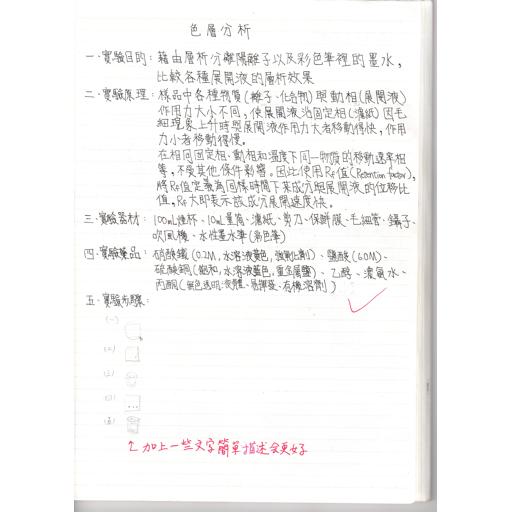 色層分析
一、實驗目的：藉由層析分離陽離子以及彩色筆裡的墨水，
比較各種展開液的層析效果
二、實驗原理：樣品中各種物質(離子、化合物)與動相(展開液)
作用力大小不同，使展開液沿固定相(濾紙)因毛
細現象上升時與展開液作用力大者移動得快，作用
力小者移動得慢。
在相同固定相、動相和溫度下同一物質的移動速率相
等，不受其他條件影響。因此使用Rf值(Retention factor)，
將Rf值定義為同樣時間下某成分與展開液的位移比
值，Rf大即表示該成分展開速度快。
三、實驗器材：100mL燒杯、10mL量筒、濾紙、剪刀、保鮮膜、毛細管、鑷子、
吹風機、水性墨水筆(彩色筆)
四、實驗藥品：硝酸鐵(0.2M，水溶液黃色，強氧化劑)、鹽酸(6.0M)、
硫酸銅(飽和，水溶液藍色，重金屬鹽)、乙醇、濃氨水、
丙酮(無色透明液體、易揮發、有機溶劑)
五、實驗步驟：
(一)
(二)
(三)
(四)
(五)
↑加上一些文字簡單描述會更好